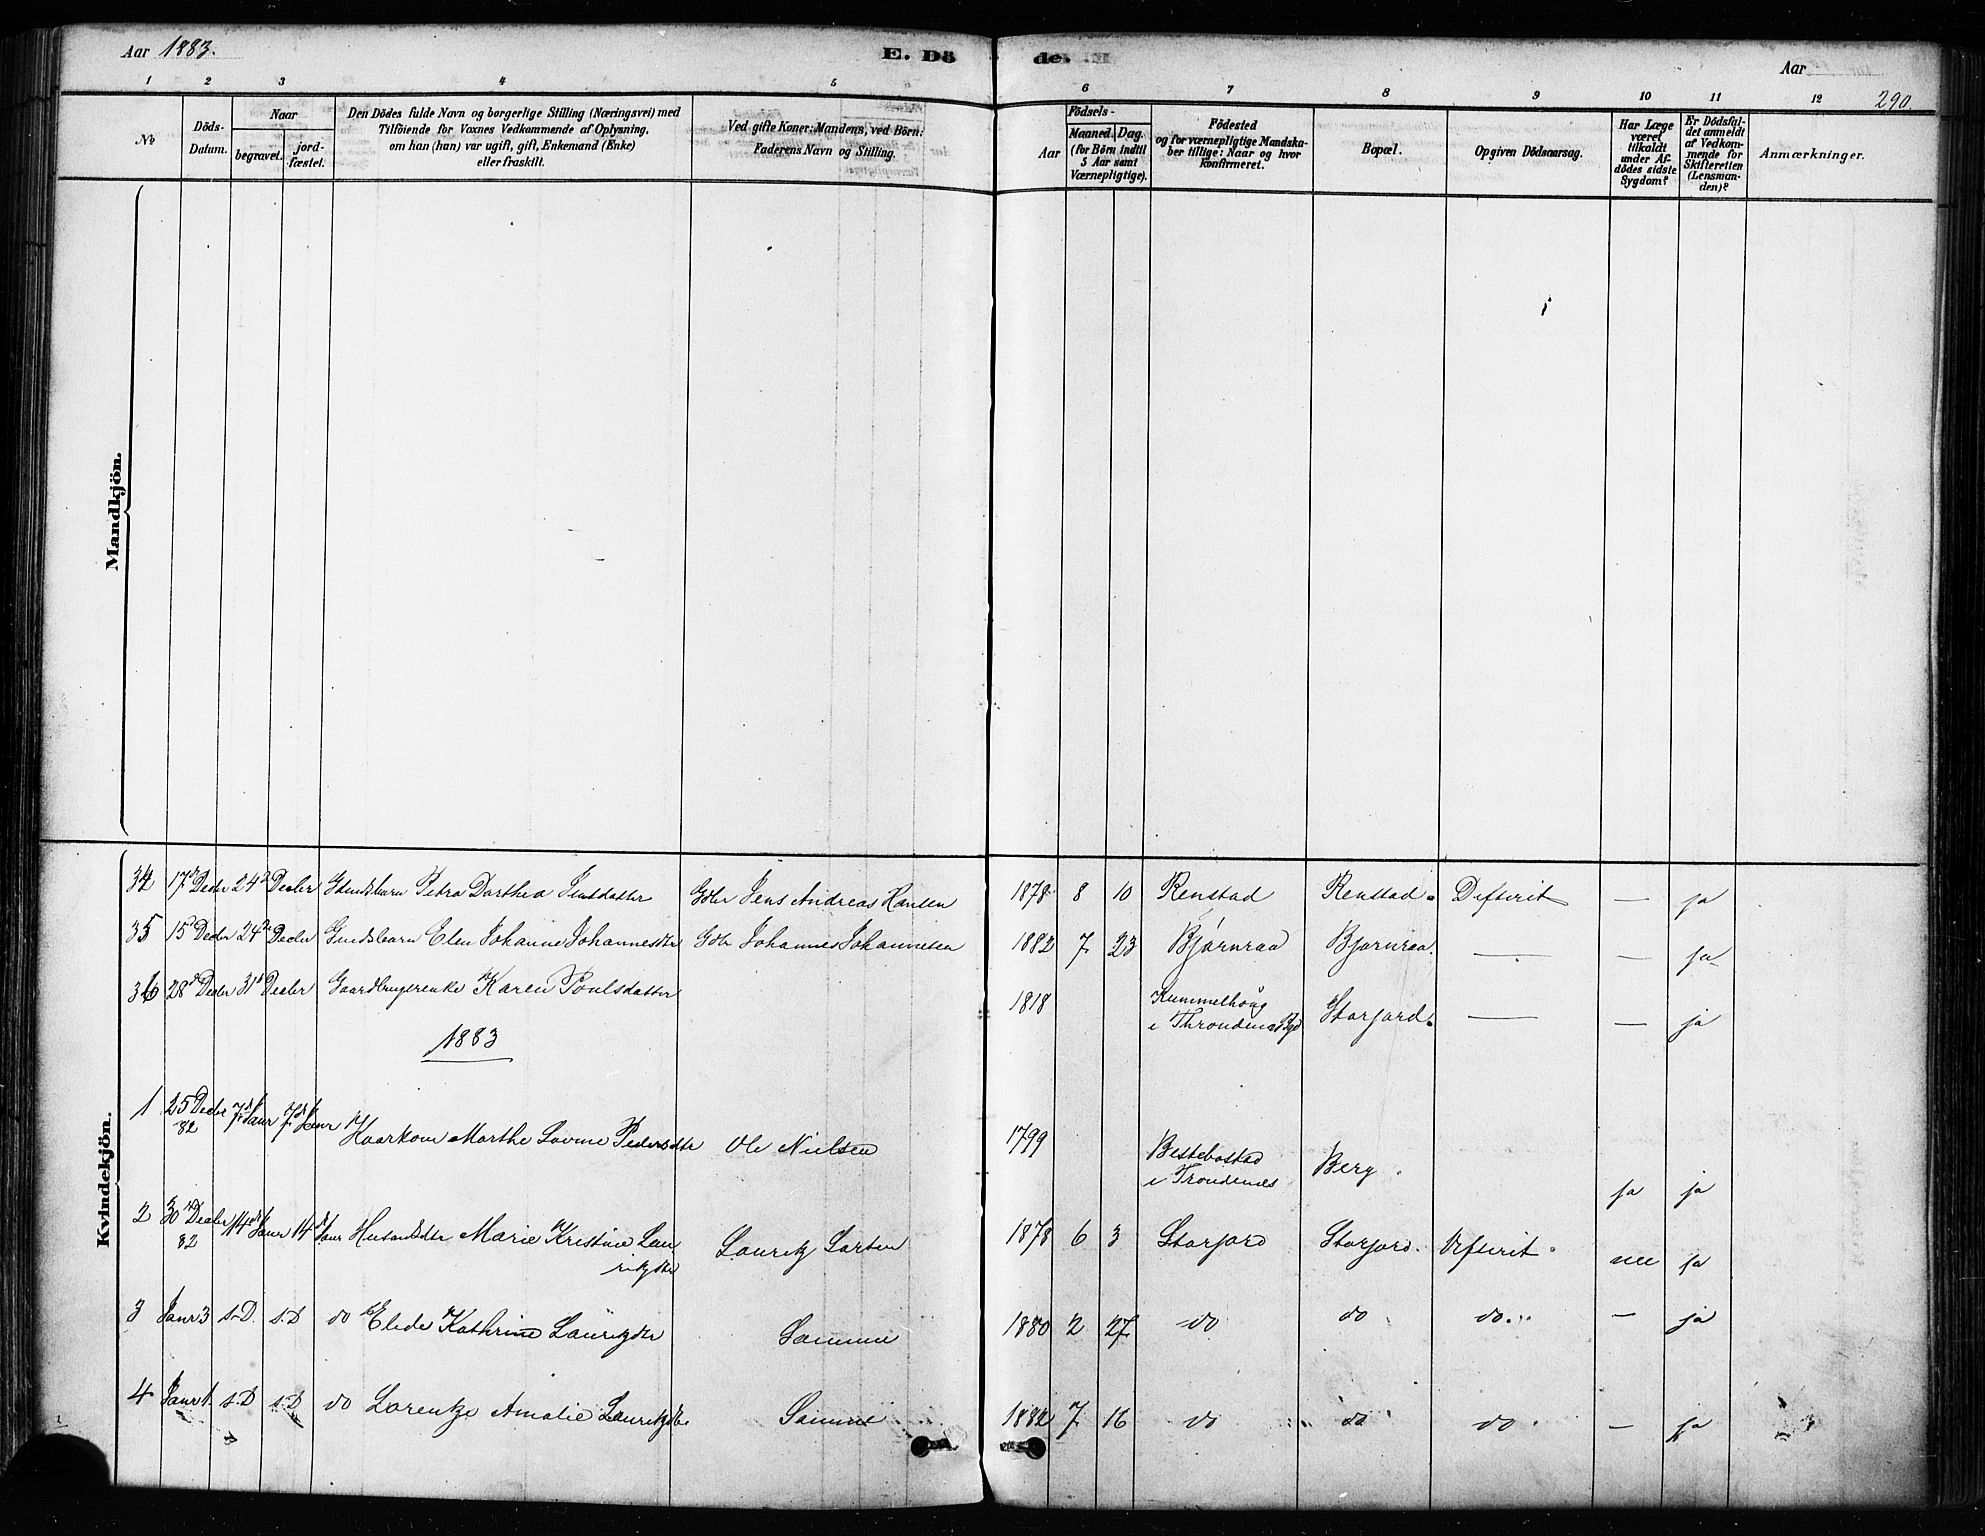 Aar 1883.
E. Dö de.
Aar
290
1 2 3 4 5 6 7 8 9 10 11 12
No
Döds-Datum.
Naar
begravet.
jord-fæstet.
Den Dödes fulde Navn og borgerlige Stilling (Næringsvei) med
Tilföiende for Voxnes Vedkommende af Oplysning,
om han (hun) var ugift, gift, Enkemand (Enke)
eller fraskilt.
Ved gifte Koner: Mandens, ved Börn:
Faderens Navn og Stilling.
Födsels-
Aar
Maaned. Dag.
(for Börn indtil
5 Aar samt
Værnepligtige).
Födested
og for værnepligtige Mandska-
ber tillige: Naar og hvor
konfirmeret.
Bopæl.
Opgiven Dödsaarsag.
Har Læge
været
tilkaldt
under Af-
dödes sidste
Sygdom?
Er Dödsfal-
det anmeldt
af Vedkom-
mende for
Skifteretten
(Lensman-
den)?
Anmærkninger.
Mandkjön.
Kvindekjön.
34 17de Decbr 24de Decbr Petra Dorthea Jensdatter Gdbr Jens Andreas Hansen 1878 8 10 Renstad Renstad. Difterit — ja
35 15de Decbr 24de Decbr Elen Johanne Johannesdtr Gdbr Johannes Johannesen 1882 7 23 Bjørnraa Bjørnraa. — — ja
36 28de Decbr 31te Decbr Gaardbrugerenke Karen Poulsdatter 1818 Kummelhaug
i Throndenes Storjord. — — ja
1883
1 25 Decbr
82 7de Janr 7de Janr Marthe Pedersdtr Ole Nielsen 1799 Bestebostad
i Trondenes Berg. ja ja
2 30 Decbr
82 14de Janr 14de Janr Husmdsdtr Marie Kristine Lau-
ritzdtr Lauritz Larsen 1878 6 3 Storjord Storjord. Difterit. nei ja
3 Janr 3 s.D. s.D do Elede Kathrine Lauritzdtr Samme 1880 2 27 do do do. — ja
4 Janr 1. s.D s.D do Lorentze Amalie Lauritzdtr Samme 1882 7 16 do do do. — ja